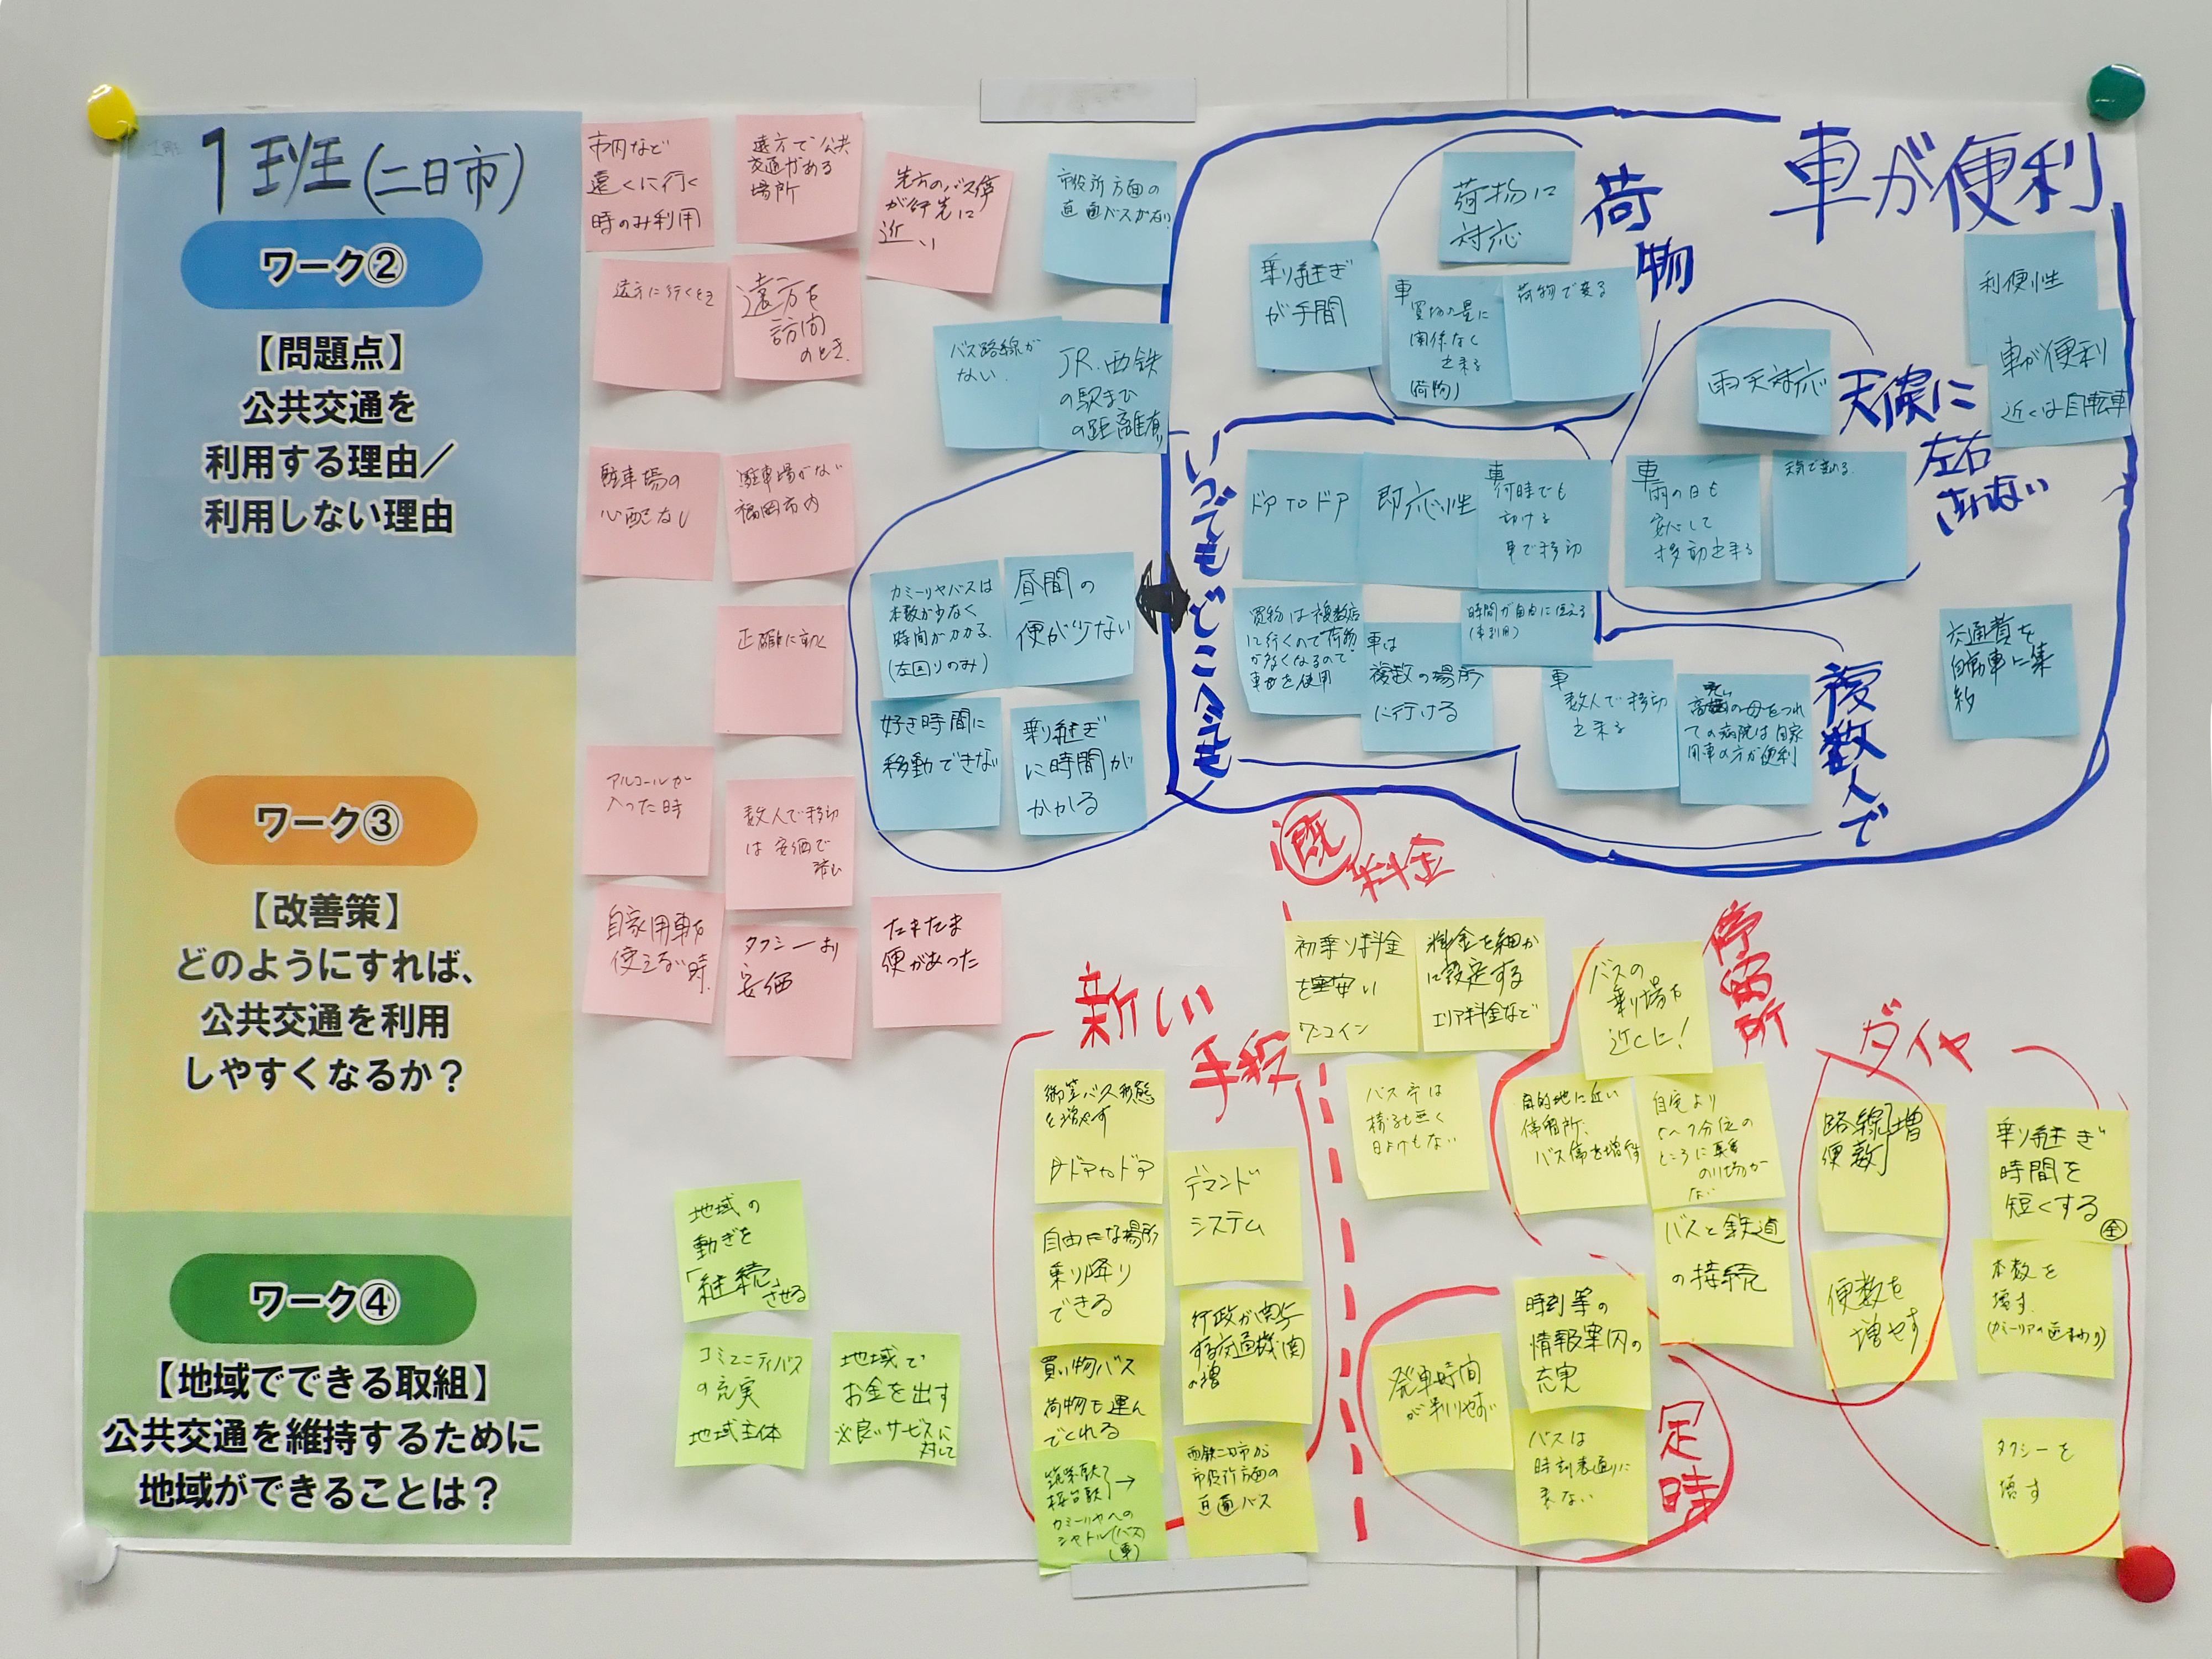 1班(二日市)
ワーク②
【問題点】
公共交通を
利用する理由／
利用しない理由
ワーク③
【改善策】
どのようにすれば、
公共交通を利用
しやすくなるか？
ワーク④
【地域でできる取組】
公共交通を維持するために
地域ができることは？
市内など
遠くに行く
時のみ利用
遠方で公共
交通がある
場所
先方のバス停
が行先に
近い
遠方に行くとき
遠方を
訪問
のとき.
駐車場の
心配なし
駐車場がない
福岡市内
正確に動く
アルコールが
入った時
数人で移動
は安価で
自家用車が
使えない時.
タクシーより
安価
たまたま
便があった
市役所方面の
直通バスがない
バス路線が
ない.
JR.西鉄
の駅まで
の距離有
カミーリヤバスは
本数が少なく
時間がかかる.
(左回りのみ)
昼間の
便が少ない
好き時間に
移動できない
乗り継ぎ
に時間が
かかる
車が便利
荷物
荷物に
対応
乗り継ぎ
が手間
車
買物の量に
関係なく
出来る
(荷物)
荷物で来る
利便性
車が便利
近くは自転車
天候に
左右
されない
雨天対応
車
雨の日も
安心して
移動出来る
いつでもどこへでも
ドアtoドア
即応性
車
何時でも
動ける
車で移動
買物は複数店
に行くので荷物
が多くなるので
車を使用
車は
複数の場所
に行ける
時間が自由に使える
(車利用)
複数人で
車
数人で移動
出来る
の母をつれ
ての病院は自家
用車の方が便利
交通費を
自動車に集
約
既
料金
初乗り料金
を安い
ワンコイン
料金を細か
に設定する
エリア料金など
バス亭は
椅子も無く
日よけもない
新しい
手段
御笠バス形態
を増やす
ドアtoドア
デマンド
システム
自由な場所
乗り降り
できる
行政が関与
する交通機関
の増
買い物バス
荷物も運ん
でくれる
西鉄二日市から
市役所方面の
直通バス
カミーリヤへの
シャトル(バス)
(車)
停留所
バスの
乗り場を
近くに!
目的地に近い
停留所、
バス停を増件
自宅より
5〜7分位の
ところに
のり場が
ない
バスと鉄道
の接続
ダイヤ
路線]増
便数
便数を
増やす
乗り継ぎ
時間を
短くする
本数を
増す.
タクシーを
増す
定時
時刻等の
情報案内の
充実
発車時間
が判りやすい
バスは
時刻表通りに
来ない
地域の
動きを
「継続」させる
コミュニティバス
の充実
地域主体
地域で
お金を出す
※良いサービスに
対して